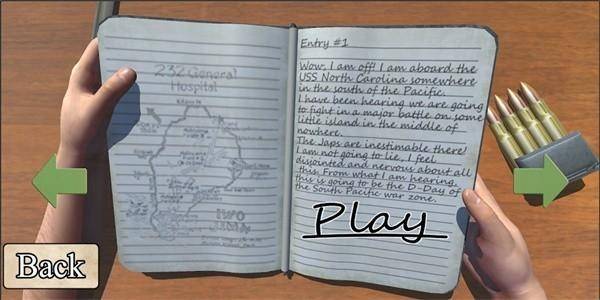 232 General
Hospital
IWO
Entry #1
Wow, I am off! I am aboard the
USS North Carolina somewhere
in the south of the Pacific.
I have been hearing we are going
to fight in a major battle on some
little island in the middle of
nowhere.
The Japs are inestimable there!
I am not going to lie, I feel
disjointed and nervous about all
this. From what I am hearing,
this is going to be the D-Day of
the South Pacific war zone.
Play
Back